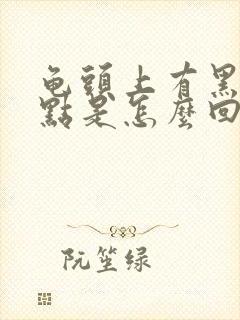 龟頭上有黑
點是怎麼回
阮笙绿